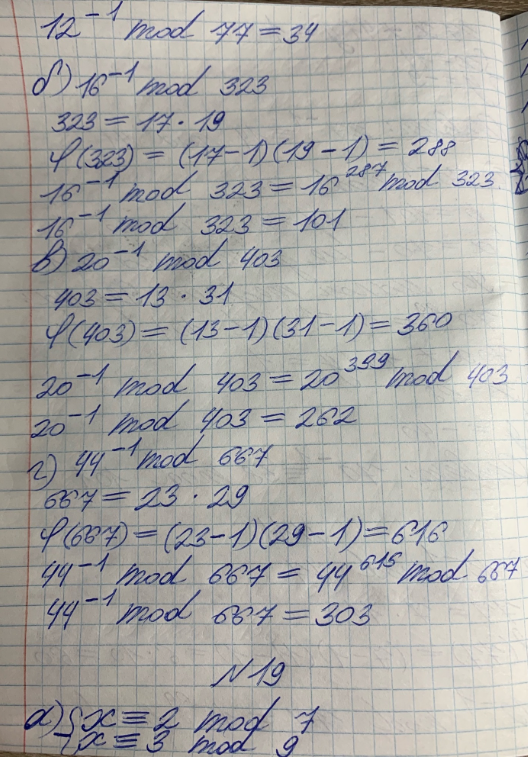 12⁻¹ mod 77 = 34
б) 16⁻¹ mod 323
323 = 17 · 19
φ(323) = (17-1)(19-1) = 288
16⁻¹ mod 323 = 16²⁸⁷ mod 323
16⁻¹ mod 323 = 101
в) 20⁻¹ mod 403
403 = 13 · 31
φ(403) = (13-1)(31-1) = 360
20⁻¹ mod 403 = 20³⁹⁹ mod 403
20⁻¹ mod 403 = 262
г) 44⁻¹ mod 667
667 = 23 · 29
φ(667) = (23-1)(29-1) = 616
44⁻¹ mod 667 = 44⁶¹⁵ mod 667
44⁻¹ mod 667 = 303
N19
а) {x ≡ 2 mod 7
{x ≡ 3 mod 9